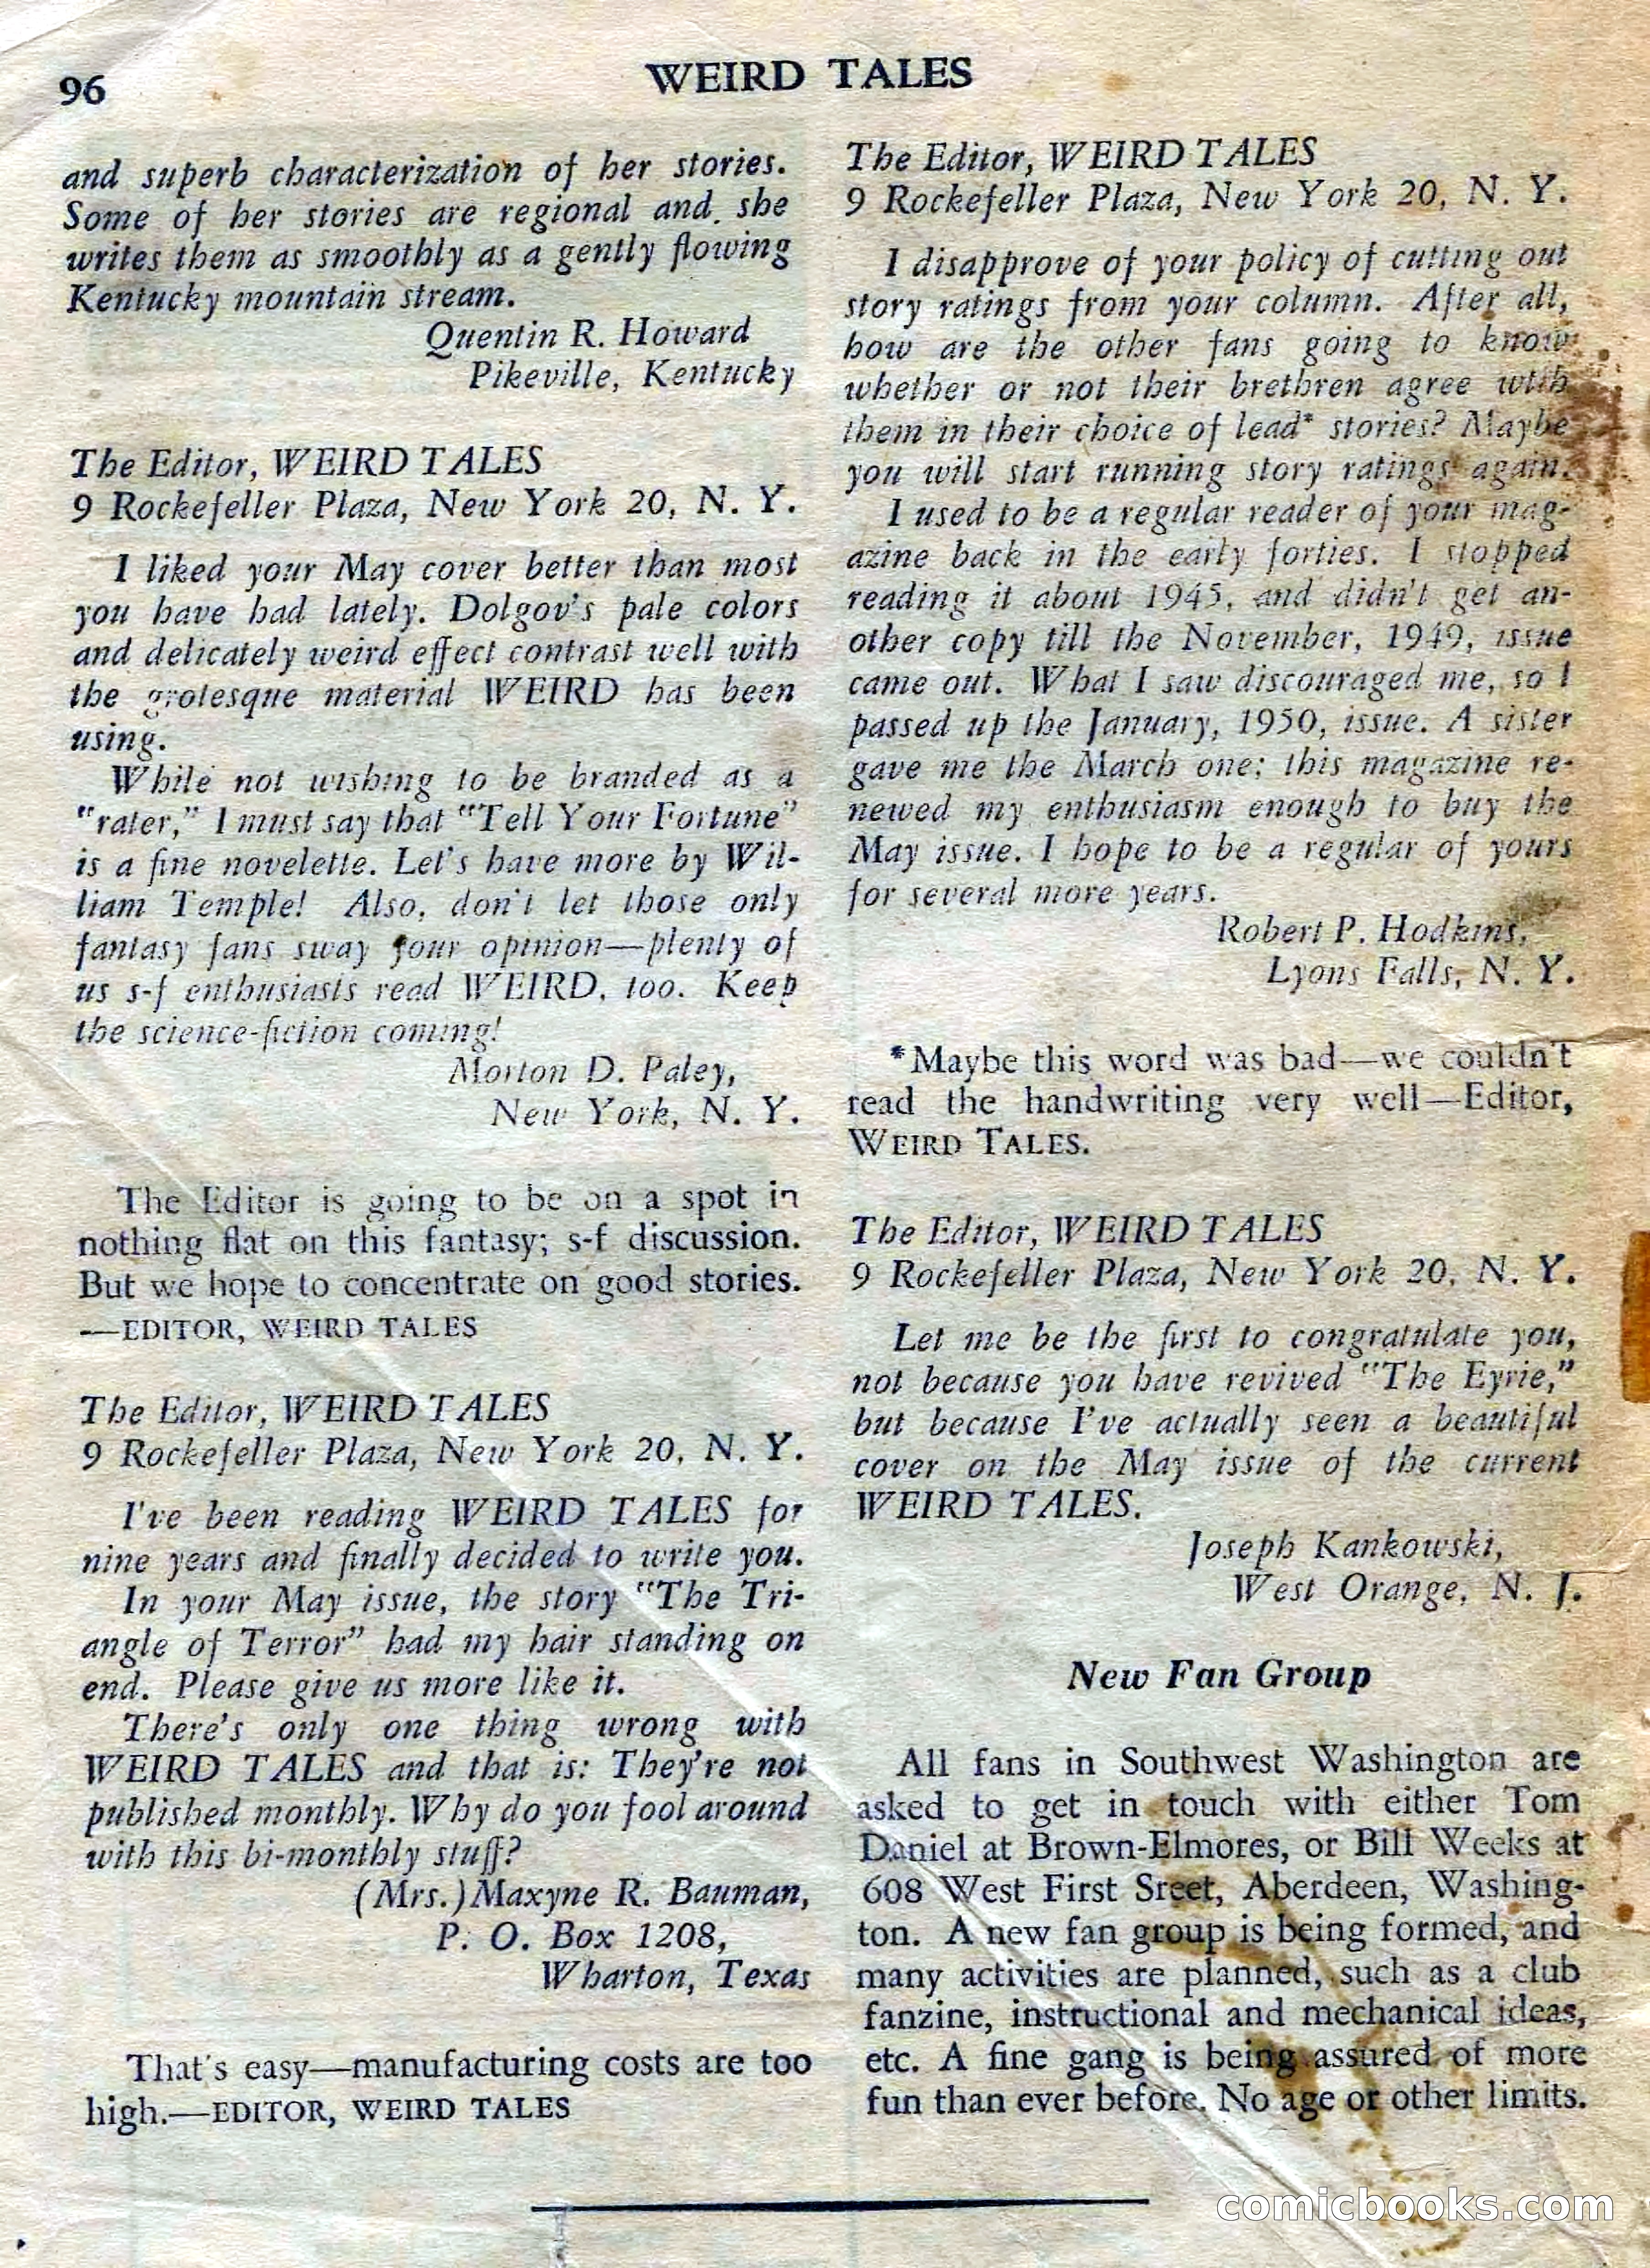 96
WEIRD TALES
and superb characterization of her stories.
Some of her stories are regional and she
writes them as smoothly as a gently flowing
Kentucky mountain stream.
Quentin R. Howard
Pikeville, Kentucky
The Editor, WEIRD TALES
9 Rockefeller Plaza, New York 20, N. Y.
I liked your May cover better than most
you have had lately. Dolgov's pale colors
and delicately weird effect contrast well with
the grotesque material WEIRD has been
using.
While not wishing to be branded as a
"rater," I must say that "Tell Your Fortune"
is a fine novelette. Let's have more by Wil-
liam Temple! Also, don't let those only
fantasy fans sway your opinion—plenty of
us s-f enthusiasts read WEIRD, too. Keep
the science-fiction coming!
Morton D. Paley,
New York, N. Y.
The Editor is going to be on a spot in
nothing flat on this fantasy; s-f discussion.
But we hope to concentrate on good stories.
—EDITOR, WEIRD TALES
The Editor, WEIRD TALES
9 Rockefeller Plaza, New York 20, N. Y.
I've been reading WEIRD TALES for
nine years and finally decided to write you.
In your May issue, the story "The Tri-
angle of Terror" had my hair standing on
end. Please give us more like it.
There's only one thing wrong with
WEIRD TALES and that is: They're not
published monthly. Why do you fool around
with this bi-monthly stuff?
(Mrs.) Maxyne R. Bauman,
P. O. Box 1208,
Wharton, Texas
That's easy—manufacturing costs are too
high.—EDITOR, WEIRD TALES
The Editor, WEIRD TALES
9 Rockefeller Plaza, New York 20, N. Y.
I disapprove of your policy of cutting out
story ratings from your column. After all,
how are the other fans going to know
whether or not their brethren agree with
them in their choice of lead* stories? Maybe
you will start running story ratings again.
I used to be a regular reader of your mag-
azine back in the early forties. I stopped
reading it about 1945, and didn't get an-
other copy till the November, 1949, issue
came out. What I saw discouraged me, so I
passed up the January, 1950, issue. A sister
gave me the March one; this magazine re-
newed my enthusiasm enough to buy the
May issue. I hope to be a regular of yours
for several more years.
Robert P. Hodkins,
Lyons Falls, N. Y.
*Maybe this word was bad—we couldn't
read the handwriting very well—Editor,
WEIRD TALES.
The Editor, WEIRD TALES
9 Rockefeller Plaza, New York 20, N. Y.
Let me be the first to congratulate you,
not because you have revived "The Eyrie,"
but because I've actually seen a beautiful
cover on the May issue of the current
WEIRD TALES.
Joseph Kankowski,
West Orange, N. J.
New Fan Group
All fans in Southwest Washington are
asked to get in touch with either Tom
Daniel at Brown-Elmores, or Bill Weeks at
608 West First Sreet, Aberdeen, Washing-
ton. A new fan group is being formed, and
many activities are planned, such as a club
fanzine, instructional and mechanical ideas,
etc. A fine gang is being assured of more
fun than ever before. No age or other limits.
comicbooks.com